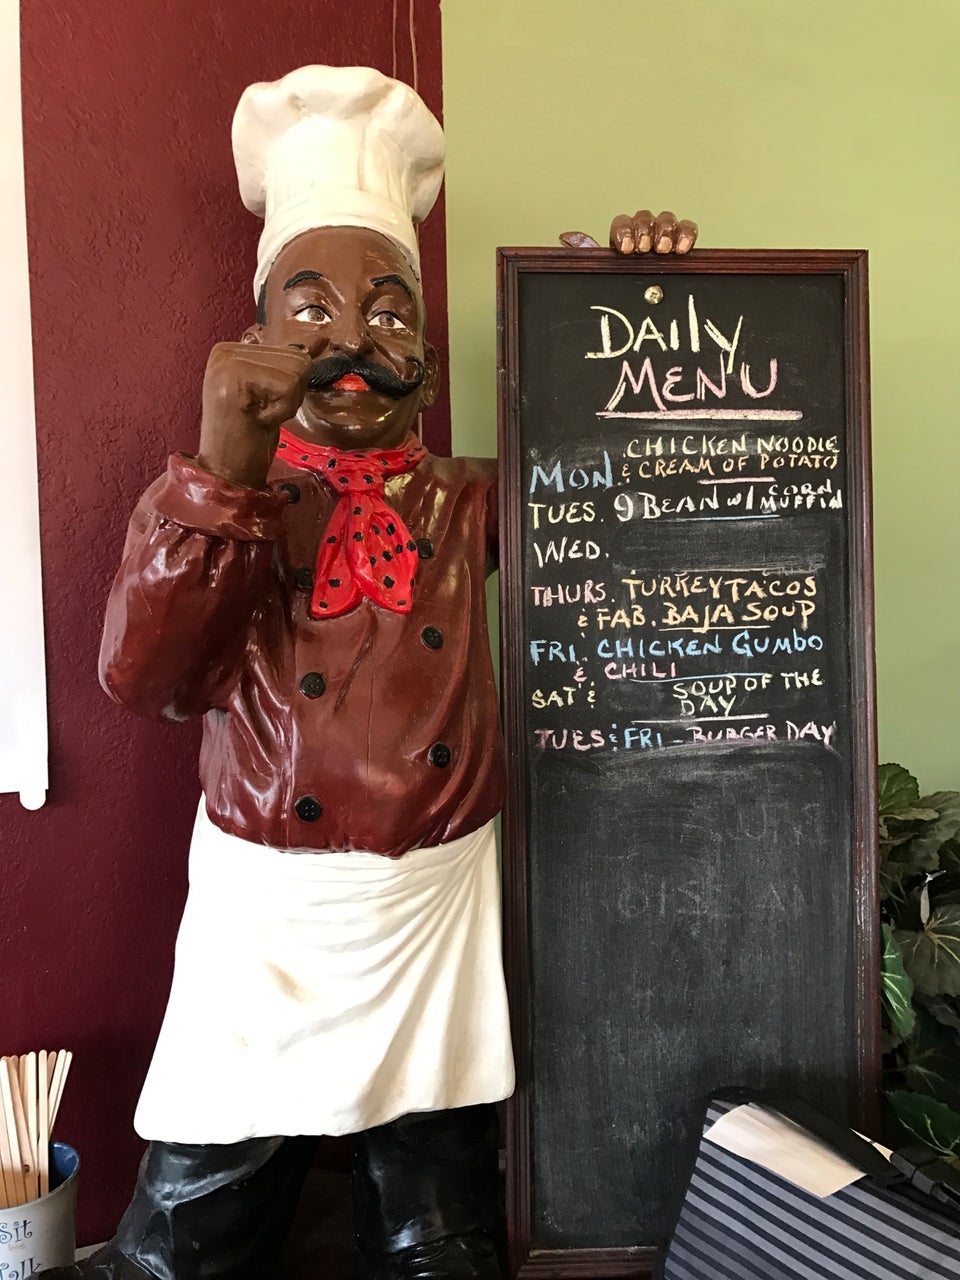 Daily
MENU
MON. CHICKEN NOODLE
& CREAM OF POTATO
TUES. 9 BEAN w/ CORN MUFFIN
WED.
THURS. TURKEY TACOS
& FAB. BAJA SOUP
FRI. CHICKEN GUMBO
& CHILI
SAT & SOUP OF THE
DAY
TUES & FRI - BURGER DAY
Sit